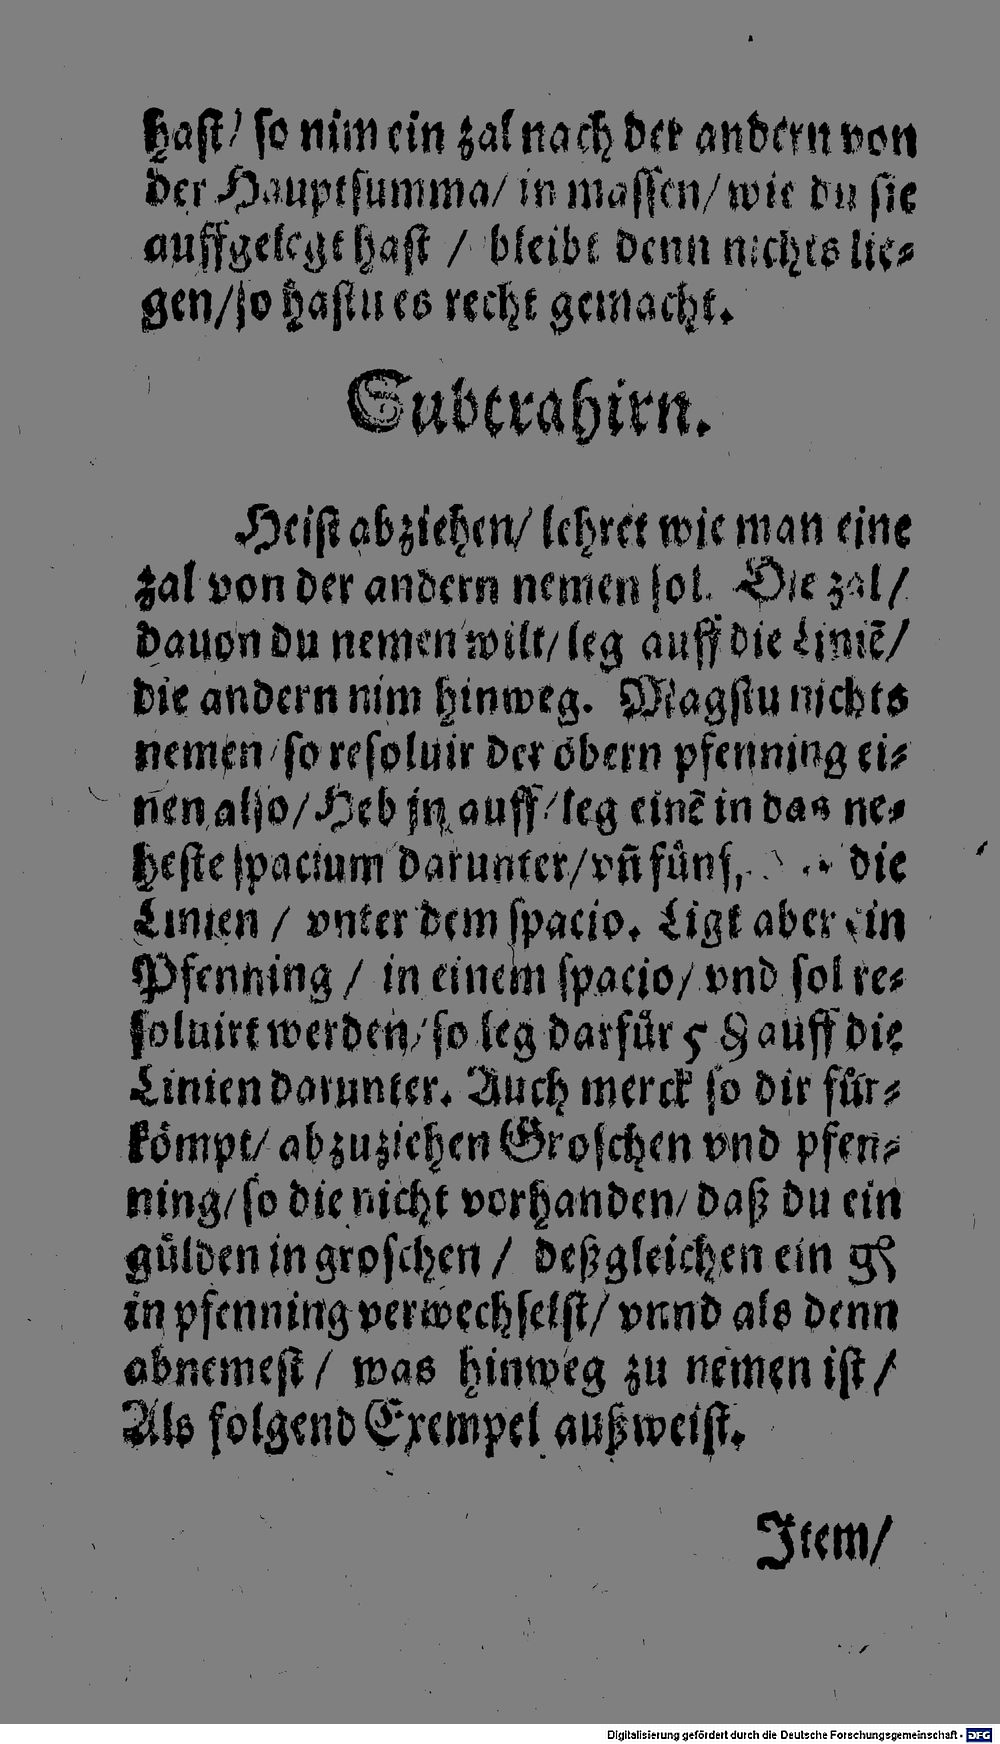 hast/ so nim ein zal nach der andern von
der Hauptsumma/ in massen/ wie du sie
auffgelegt hast / bleibt denn nichts lie⸗
gen/ so hastu es recht gemacht.
Subtrahirn.
Heist abziehen/ lehret wie man eine
zal von der andern nemen sol. Die zal/
dauon du nemen wilt/ leg auff die Liniē/
die andern nim hinweg. Magstu nichts
nemen/ so resoluir der obern pfenning ei⸗
nen also/ Heb jn auff/ leg einē in das ne⸗
heste spacium darunter/ vñ fünf, die
Linien / vnter dem spacio. Ligt aber ein
Pfenning / in einem spacio/ vnd sol re⸗
soluirt werden/ so leg darfür 5 ₰ auff die
Linien darunter. Auch merck so dir für⸗
kömpt/ abzuziehen Groschen vnd pfen⸗
ning/ so die nicht vorhanden/ daß du ein
gülden in groschen / deßgleichen ein gl
in pfenning verwechselst/ vnnd als denn
abnemest / was hinweg zu nemen ist /
Als folgend Exempel außweist.
Item/
Digitalisierung gefördert durch die Deutsche Forschungsgemeinschaft - DFG